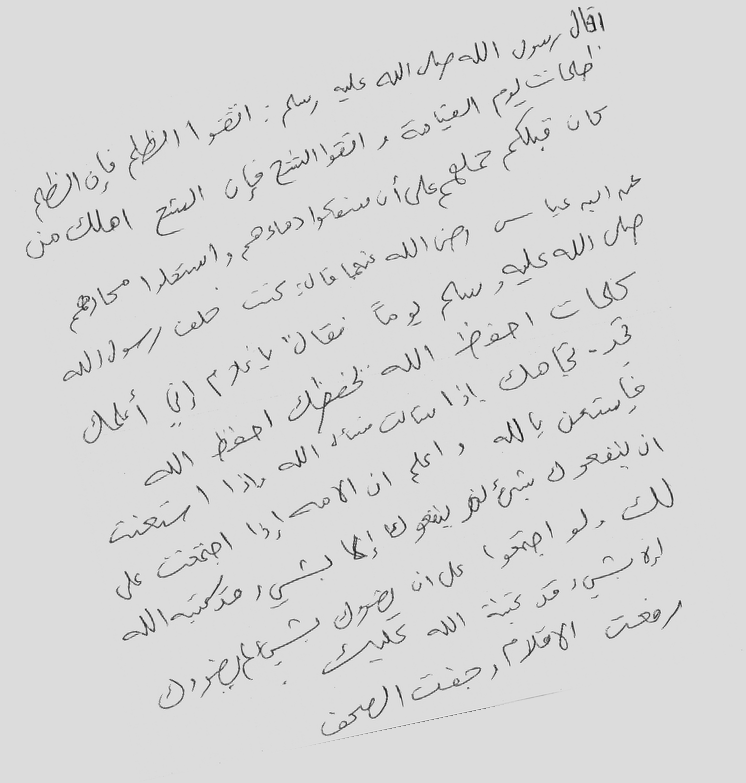 قال رسول الله صلى الله عليه وسلم : اتقوا الظلم فإن الظلم
ظلمات يوم القيامة و اتقوا الشح فإن الشح اهلك من
كان قبلكم حملهم على أن سفكوا دماءهم و استحلوا محارمهم
عبد الله عباس رضي الله عنهما قال: كنت خلف رسول الله
صلى الله عليه وسلم يوماً فقال يا غلام إني أعلمك
كلمات احفظ الله يحفظك احفظ الله
تجد تجاهك إذا سألت فسأل الله وإذا استعنت
فإستعن بالله و اعلم ان الامه إذا اجتمعت على
ان ينفعوك بشئ لم ينفعوك إلا بشيء قد كتبه الله
لك ولو اجتمعوا على ان يضروك بشيء لم يضروك
إلا بشيء قد كتبه الله عليك
رفعت الاقلام و جفت الصحف